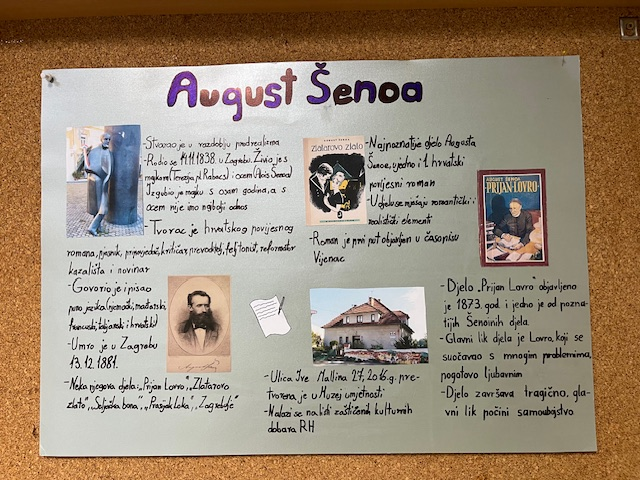 August Šenoa
-Stvarao je u razdoblju predrealizma
-Rodio se 14.11.1838. u Zagrebu. Živio je s
majkom (Terezija pl. Rabacs) i ocem (Alois Šenoa)
Izgubio je majku s osam godina, a s
ocem nije imo najbolji odnos
-Tvorac je hrvatskog povijesnog
romana, pjesnik, pripovjedač, kritičar, prevoditelj, feljtonist, reformator
kazališta i novinar
-Govorio je i pisao
puno jezika (njemački, mađarski
francuski, talijanski i hrvatski)
-Umro je u Zagrebu
13.12.1881.
-Neka njegova djela: "Prijan Lovro", "Zlatarovo
zlato", "Seljačka buna", "Prosjak Luka", "Zagrebulje"
zlatarovo zlato
-Najpoznatije djelo Augusta
Šenoe, ujedno i 1. hrvatski
povijesni roman
-U djelu se mješaju romantički i
realistički elementi
-Roman je prvi put objavljen u časopisu
Vijenac
-Ulica Ive Mallina 27, 2016.g. pre-
tvorena je u Muzej umjetnosti
-Nalazi se na listi zaštičenih kulturnih
dobara RH
AUGUST ŠENOA
PRIJAN LOVRO
-Djelo "Prijan Lovro" objavljeno
je 1873. god. i jedno je od pozna-
tijih Šenoinih djela.
-Glavni lik djela je Lovro, koji se
suočavao s mnogim problemima,
pogotovo ljubavnim
-Djelo završava tragično, gla-
vni lik počini samoubojstvo